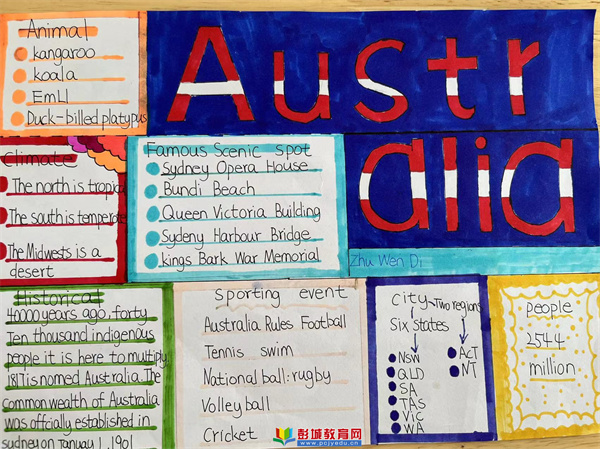 Animal
kangaroo
koala
EmLl
Duck-billed platypus
Austr
alia
Zhu Wen Di
Climate
The north is tropica
The south is temperate
The Midwests is a
desert
Famous Scenic spot
Sydney Opera House
Bundi Beach
Queen Victoria Building
Sydeny Harbour Bridge
kings Bark War Memorial
Historical
40000 years ago, forty
Ten thousand indigenous
people it is here to multiply.
1817 is named Australia. The
common wealth of Australia
was offcially established in
sydney on January 1, 1901
sporting event
Australia Rules Football
Tennis swim
National ball: rugby
Volley ball
Cricket
City
Two regions
Six states
NSW
QLD
SA
TAS
VIC
WA
ACT
NT
people
2544
million
彭城教育网
www.pcjyedu.cn